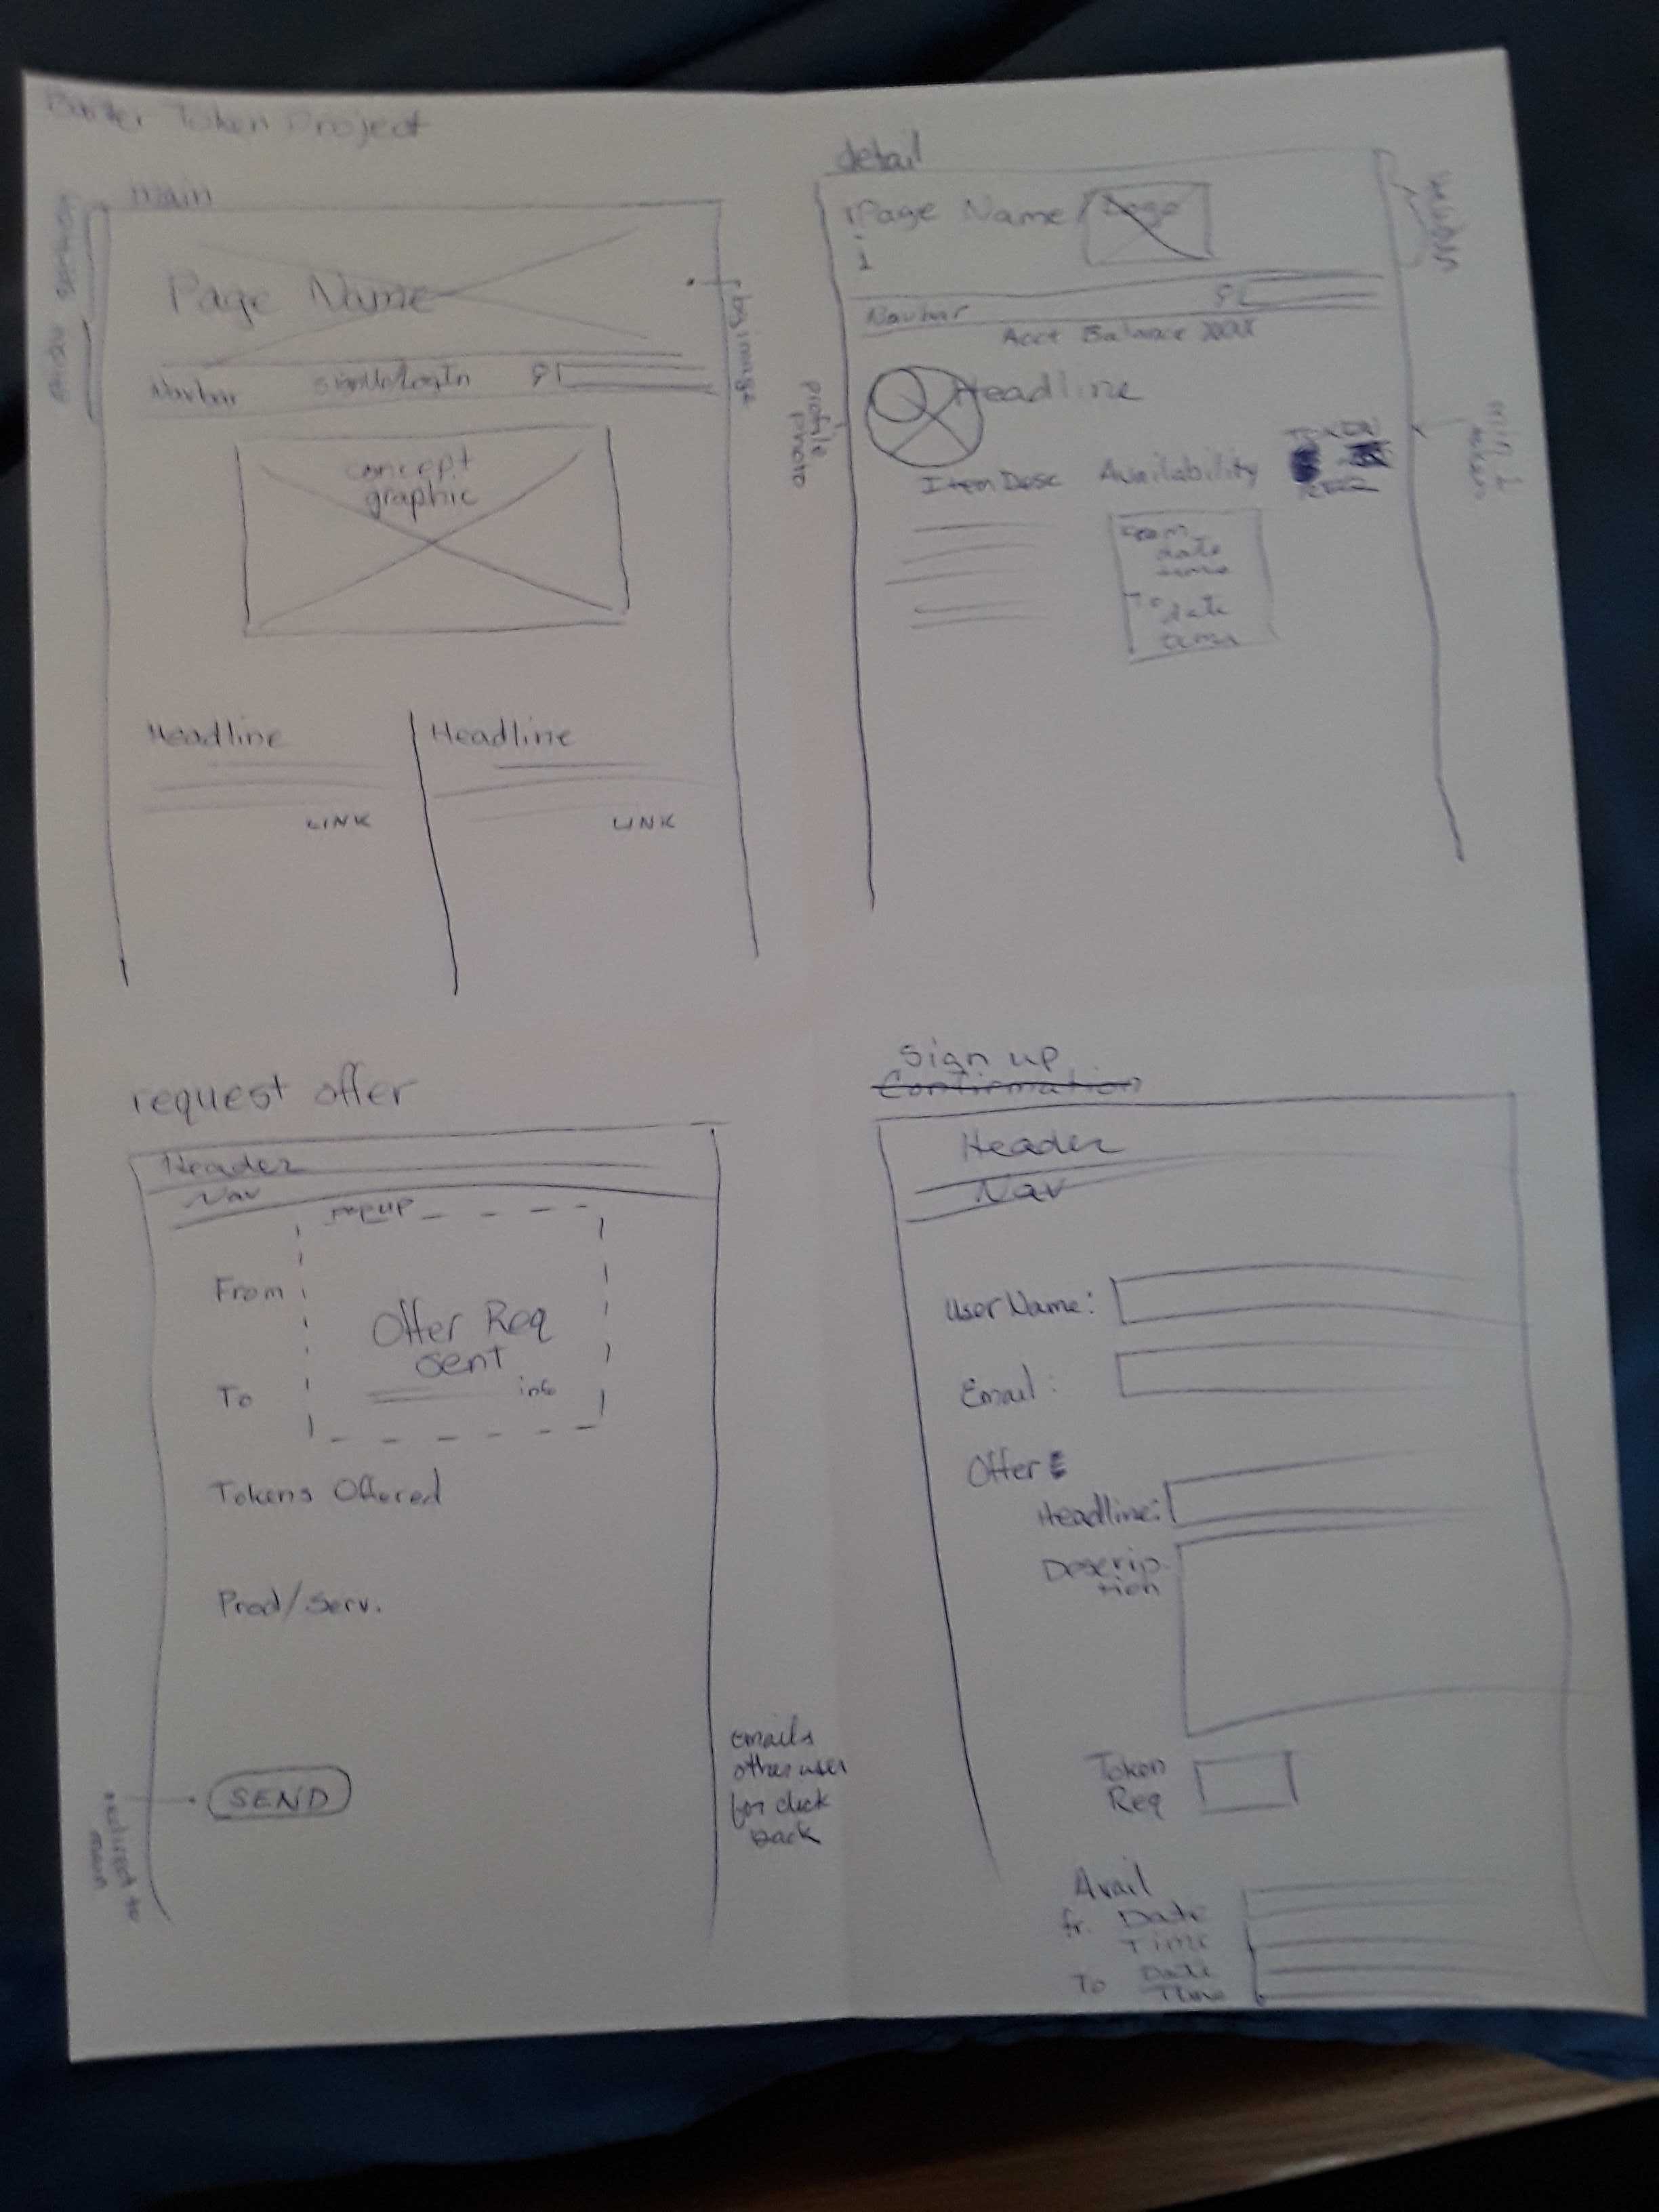 Barter Token Project
main
Page Name
bg image
Navbar SignUp/LogIn
concept
graphic
Headline
LINK
Headline
LINK
detail
Page Name / Logo
Navbar
Acct Balance XXXX
profile
photo
Headline
Item Desc Availability
From
date
time
To
date
time
request offer
Header
Nav
popup
From
Offer Req
sent
info
To
Tokens Offered
Prod/Serv.
SEND
redirect to
main
emails
other user
for click
back
Sign up
Confirmation
Header
Nav
User Name:
Email:
Offer
Headline:
Descrip-
tion
Token
Req
Avail
fr. Date
Time
To Date
Time